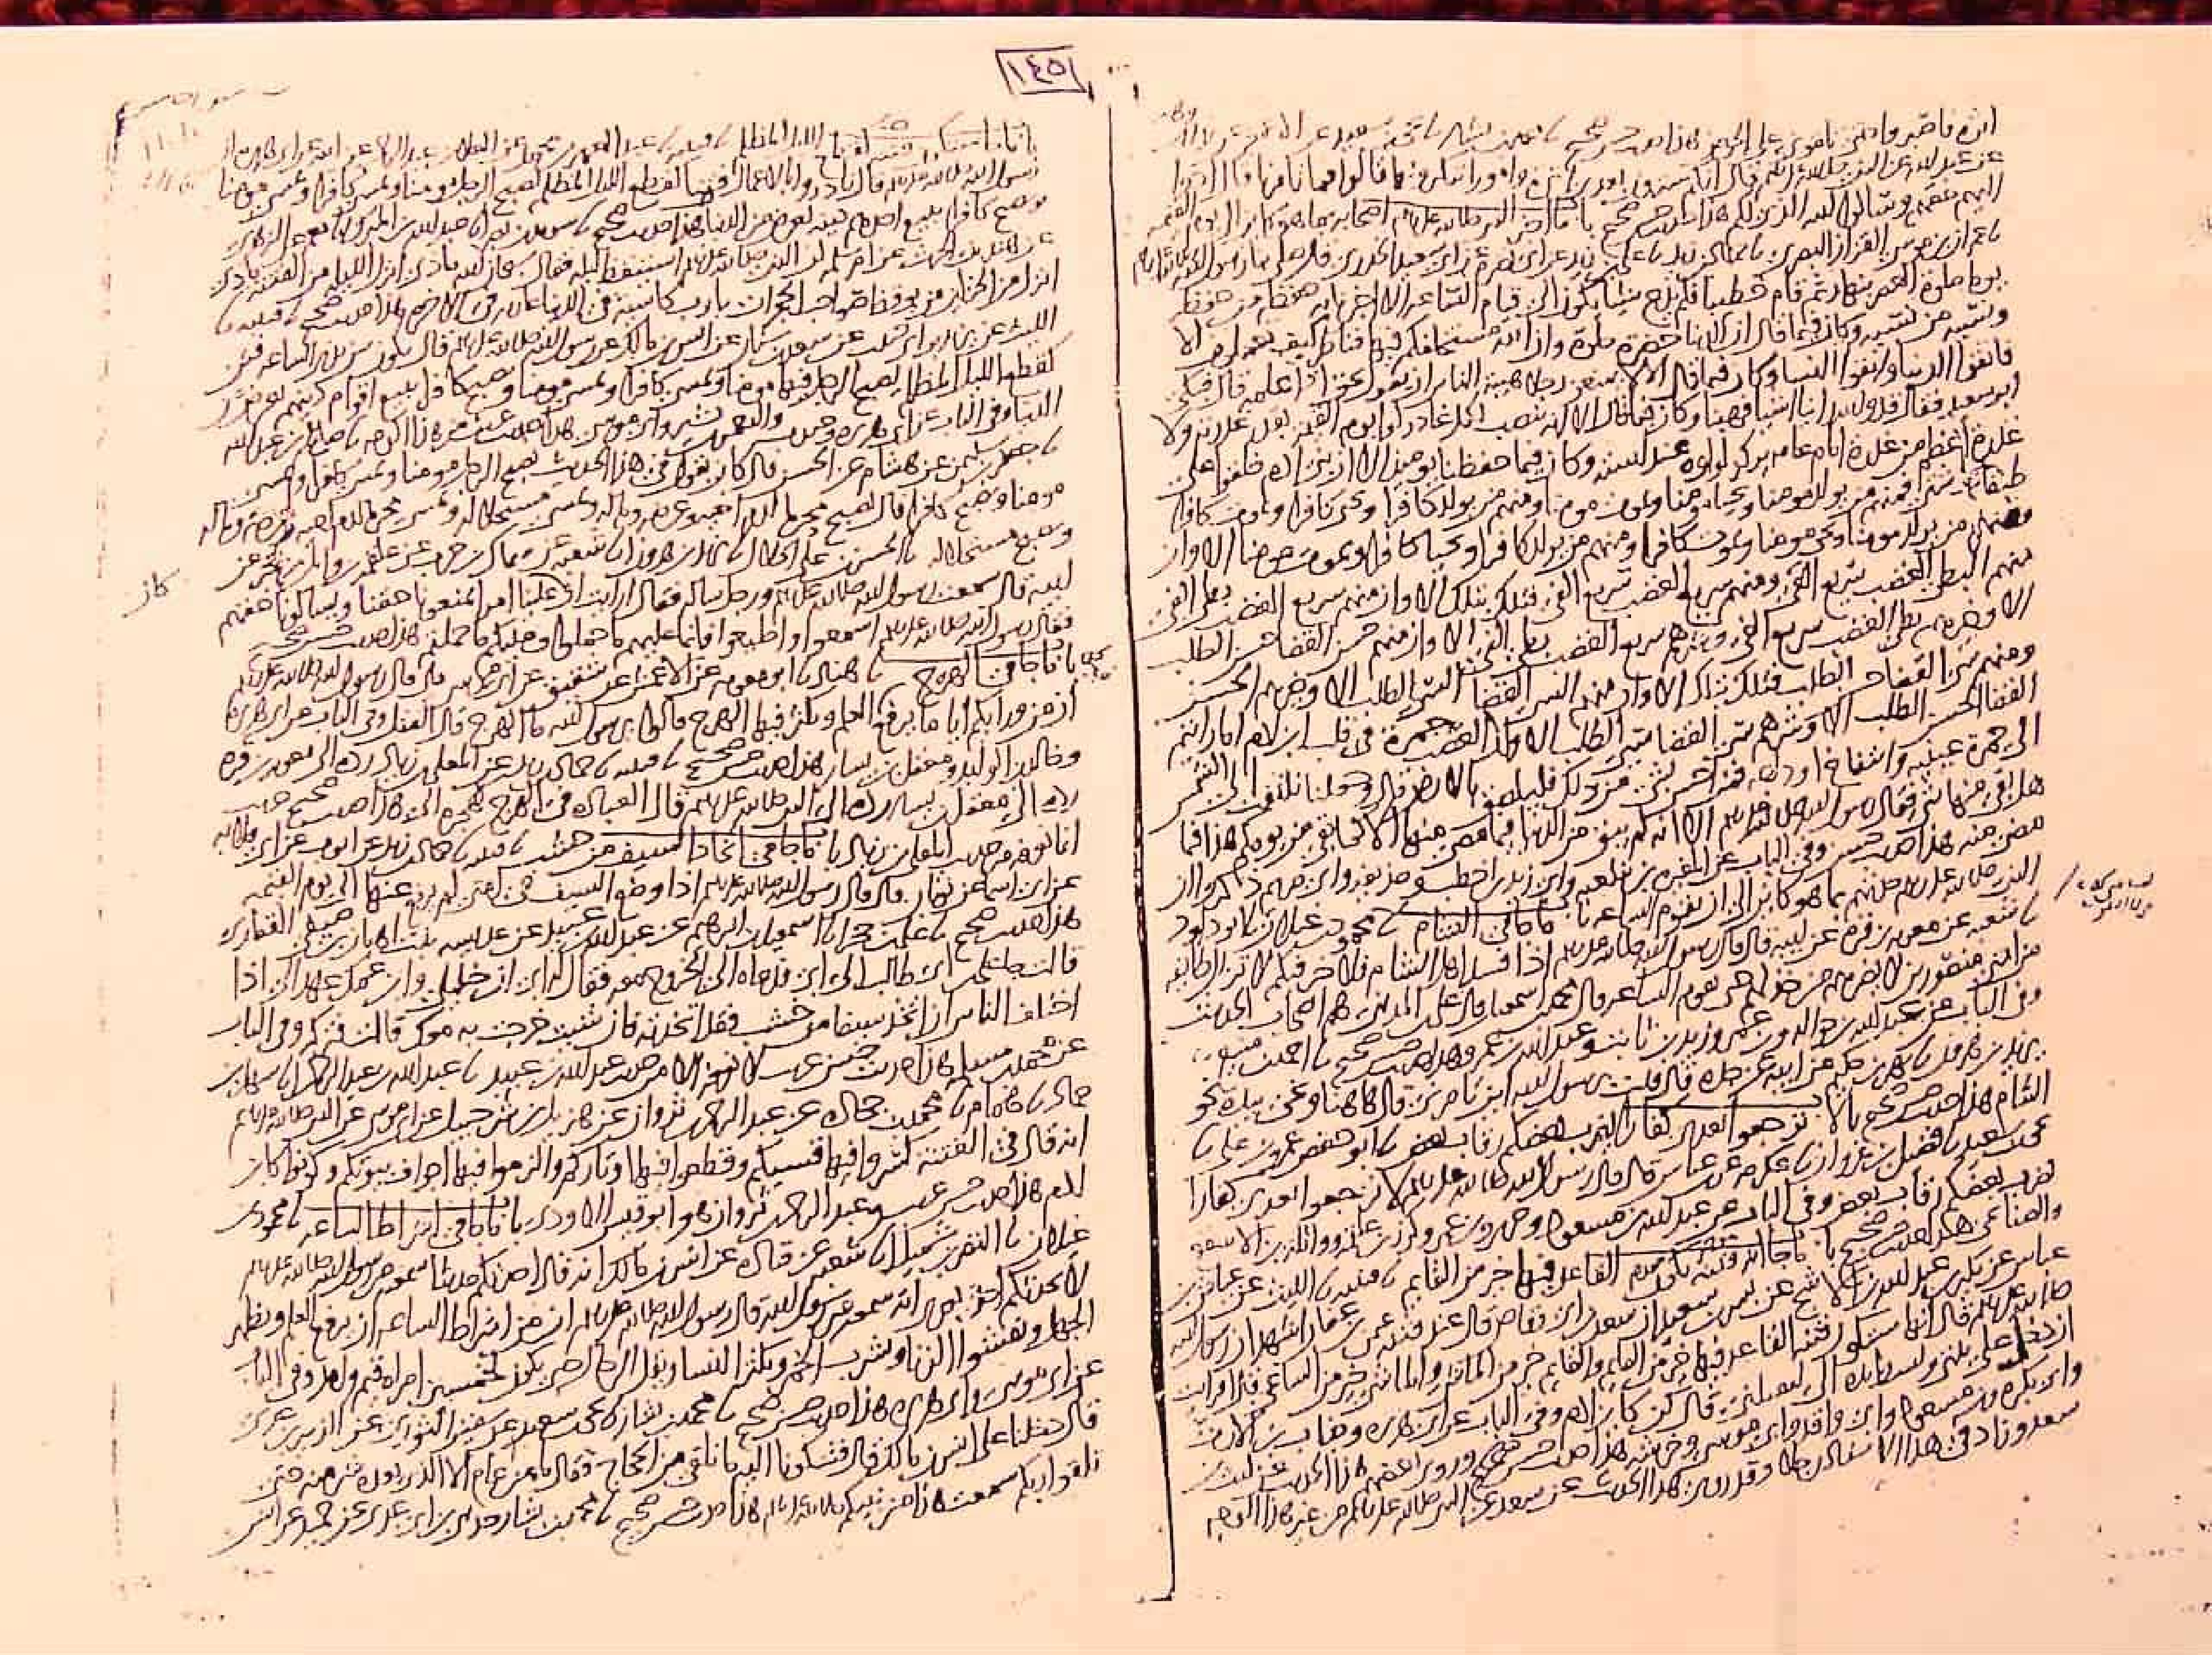 ١٤٥
اثرة فاصبروا حتى تلقوني على الحوض هذا حديث حسن صحيح نا محمد بن بشار نا يحيى بن سعيد عن الاعمش عن زيد
عن عبد الله عن النبي صلى الله عليه وسلم قال انكم سترون بعدي اثرة وامورا تنكرونها قالوا فما تامرنا قال ادوا
اليهم حقهم وسلوا الله الذي لكم هذا حديث حسن صحيح باب ما اخبر النبي صلى الله عليه وسلم اصحابه بما هو كاين الى يوم القيمة
نا عمران بن موسى القزاز البصري نا حماد بن زيد نا علي بن زيد عن ابي نضرة عن ابي سعيد الخدري قال صلى بنا رسول الله صلى الله عليه وسلم
يوما صلوة العصر بنهار ثم قام خطيبا فلم يدع شيئا يكون الى قيام الساعة الا اخبرنا به حفظه من حفظه
ونسيه من نسيه وكان فيما قال ان الدنيا خضرة حلوة وان الله مستخلفكم فيها فناظر كيف تعملون الا
فاتقوا الدنيا واتقوا النسا وكان فيما قال الا لا يمنعن رجلا هيبة الناس ان يقول بحق اذا علمه قال فبكى
ابو سعيد فقال قد والله راينا اشيا فهبنا وكان فيما قال الا انه ينصب لكل غادر لوا يوم القيمة بقدر غدرته ولا
غدرة اعظم من غدرة امام عامة يركز لواوه عند استه وكان فيما حفظنا يوميذ الا ان بني ادم خلقوا على
طبقات شتى فمنهم من يولد مومنا ويحيا مومنا ويموت مومنا ومنهم من يولد كافرا ويحيى كافرا ويموت كافرا
ومنهم من يولد مومنا ويحيى مومنا ويموت كافرا ومنهم من يولد كافرا ويحيا كافرا ويموت مومنا الا وان
منهم البطي الغضب سريع الفي ومنهم سريع الغضب سريع الفي فتلك بتلك الا وان منهم سريع الغضب بطي الفي
الا وخيرهم بطي الغضب سريع الفي وشرهم سريع الغضب بطي الفي الا وان منهم حسن القضا حسن الطلب
ومنهم سي القضا حسن الطلب فتلك بتلك الا وان منهم السي القضا السي الطلب الا وخيرهم الحسن
القضا الحسن الطلب الا وشرهم سي القضا سي الطلب الا وان الغضب جمرة في قلب ابن ادم اما رايتم
الى حمرة عينيه وانتفاخ اوداجه فمن احس بشي من ذلك فليلصق بالارض قال وجعلنا نلتفت الى الشمس
هل بقي منها شي فقال رسول الله صلى الله عليه وسلم الا انه لم يبق من الدنيا فيما مضى منها الا كما بقي من يومكم هذا فيما
مضى منه هذا حديث حسن وفي الباب عن المغيرة بن شعبة وابي زيد بن اخطب وحذيفة وابي مريم ذكروا ان
النبي صلى الله عليه وسلم حدثهم بما هو كاين الى ان تقوم الساعة باب ما جا في الشام نا محمود بن غيلان نا ابو داود
نا شعبة عن معوية بن قرة عن ابيه قال قال رسول الله صلى الله عليه وسلم اذا فسد اهل الشام فلا خير فيكم لا تزال طايفة
من امتي منصورين لا يضرهم من خذلهم حتى تقوم الساعة قال محمد بن اسمعيل قال علي بن المديني هم اصحاب الحديث
وفي الباب عن عبد الله بن حوالة وبن عمر وزيد بن ثابت وعبد الله بن عمرو وهذا حديث حسن صحيح نا احمد بن منيع نا
يزيد بن هرون نا بهز بن حكيم عن ابيه عن جده قال قلت يرسول الله اين تامرني قال هاهنا ونحى بيده نحو
الشام هذا حديث حسن صحيح باب لا ترجعوا بعدي كفارا يضرب بعضكم رقاب بعض نا ابو حفص عمرو بن علي نا
يحيى بن سعيد نا فضيل بن غزوان نا عكرمة عن ابن عباس قال قال رسول الله صلى الله عليه وسلم لا ترجعوا بعدي كفارا
يضرب بعضكم رقاب بعض وفي الباب عن عبد الله بن مسعود وجرير وبن عمر وكرز بن علقمة وواثلة بن الاسقع
والصنابحي هذا حديث حسن صحيح باب ما جا انه تكون فتنة القاعد فيها خير من القايم نا قتيبة نا الليث عن عياش بن
عباس عن بكير بن عبد الله بن الاشج عن بسر بن سعيد ان سعد بن ابي وقاص قال عند فتنة عثمن بن عفان اشهد ان رسول الله
صلى الله عليه وسلم قال انها ستكون فتنة القاعد فيها خير من القايم والقايم خير من الماشي والماشي خير من الساعي قال افرايت
ان دخل علي بيتي وبسط يده الي ليقتلني قال كن كابن ادم وفي الباب عن ابي هريرة وخباب بن الارت
وابي بكرة وبن مسعود وابي واقد وابي موسى وخرشة هذا حديث حسن وروى بعضهم هذا الحديث عن ليث بن
سعد وزاد في هذا الاسناد رجلا وقد روي هذا الحديث عن سعد عن النبي صلى الله عليه وسلم من غير هذا الوجه
باب ما جا ستكون فتنة كقطع الليل المظلم نا قتيبة نا عبد العزيز بن محمد عن العلا بن عبد الرحمن عن ابيه عن ابي هريرة ان
رسول الله صلى الله عليه وسلم قال بادروا بالاعمال فتنا كقطع الليل المظلم يصبح الرجل مومنا ويمسي كافرا ويمسي مومنا
ويصبح كافرا يبيع احدهم دينه بعرض من الدنيا هذا حديث حسن صحيح نا سويد بن نصر نا عبد الله بن المبرك نا معمر عن الزهري
عن هند بنت الحرث عن ام سلمة ان النبي صلى الله عليه وسلم استيقظ ليلة فقال سبحان الله ماذا انزل الليلة من الفتنة ماذا
انزل من الخزاين من يوقظ صواحب الحجرات يا رب كاسية في الدنيا عارية في الاخرة هذا حديث صحيح نا قتيبة نا
الليث عن يزيد بن ابي حبيب عن سعد بن سنان عن انس بن مالك عن رسول الله صلى الله عليه وسلم قال تكون بين يدي الساعة فتن
كقطع الليل المظلم يصبح الرجل فيها مومنا ويمسي كافرا ويمسي مومنا ويصبح كافرا يبيع اقوام دينهم بعرض من
الدنيا وفي الباب عن ابي هريرة وجندب والنعمن بن بشير وابي موسى هذا حديث غريب من هذا الوجه نا صالح بن عبد الله
نا جعفر بن سليمن عن هشام عن الحسن قال كان يقول في هذا الحديث يصبح الرجل مومنا ويمسي كافرا ويمسي
مومنا ويصبح كافرا قال يصبح محرما لدم اخيه وعرضه وماله ويمسي مستحلا له ويمسي محرما لدم اخيه وعرضه وماله
ويصبح مستحلا له نا الحسن بن علي الخلال نا يزيد بن هرون نا شعبة عن سماك بن حرب عن علقمة بن وايل بن حجر عن
ابيه قال سمعت رسول الله صلى الله عليه وسلم ورجل ساله فقال ارايت ان كان علينا امرا يمنعونا حقنا ويسالونا حقهم
كان
فقال رسول الله صلى الله عليه وسلم اسمعوا واطيعوا فانما عليهم ما حملوا وعليكم ما حملتم هذا حديث حسن صحيح
باب ما جا في الهرج نا هناد نا ابو معوية عن الاعمش عن شقيق عن ابي موسى قال قال رسول الله صلى الله عليه وسلم
ان من ورايكم اياما يرفع العلم ويكثر فيها الهرج قالوا يرسول الله ما الهرج قال القتل وفي الباب عن ابي هريرة
وخالد بن الوليد ومعقل بن يسار هذا حديث حسن صحيح نا قتيبة نا حماد بن زيد عن المعلى بن زياد رده الى معوية بن قرة
رده الى معقل بن يسار رده الى النبي صلى الله عليه وسلم قال العبادة في الهرج كهجرة الي هذا حديث صحيح غريب
انما نعرفه من حديث المعلى بن زياد باب ما جا في اتخاذ السيف من خشب نا قتيبة نا حماد بن زيد عن ايوب عن ابي قلابة
عن ابي اسما عن ثوبان قال قال رسول الله صلى الله عليه وسلم اذا وضع السيف في امتي لم يرفع عنها الى يوم القيمة
هذا حديث صحيح نا علي بن حجر نا اسمعيل بن ابرهيم عن عبد الله بن عبيد عن عديسة بنت اهبان بن صيفي الغفاري
قالت جا علي بن ابي طالب الى ابي فدعاه الى الخروج معه فقال له ابي ان خليلي وابن عمك عهد الي اذا
اختلف الناس ان اتخذ سيفا من خشب فقد اتخذته فان شيت خرجت به معك قالت فتركه وفي الباب
عن محمد بن مسلمة هذا حديث حسن غريب لا نعرفه الا من حديث عبد الله بن عبيد نا عبد الله بن عبد الرحمن انا سهل بن
حماد نا همام نا محمد بن جحادة عن عبد الرحمن بن ثروان عن هزيل بن شرحبيل عن ابي موسى عن النبي صلى الله عليه وسلم
انه قال في الفتنة كسروا فيها قسيكم وقطعوا فيها اوتاركم والزموا فيها اجواف بيوتكم وكونوا كابن
ادم هذا حديث حسن غريب وعبد الرحمن بن ثروان هو ابو قيس الاودي باب ما جا في اشراط الساعة نا محمود بن
غيلان نا النضر بن شميل نا شعبة عن قتادة عن انس بن مالك انه قال احدثكم حديثا سمعته من رسول الله صلى الله عليه وسلم
لا يحدثكم احد بعدي انه سمعه من رسول الله قال رسول الله صلى الله عليه وسلم ان من اشراط الساعة ان يرفع العلم ويظهر
الجهل وتفشوا الزنا وتشرب الخمر ويكثر النسا ويقل الرجال حتى يكون لخمسين امراة قيم واحد وفي الباب
عن ابي موسى وابي هريرة هذا حديث حسن صحيح نا محمد بن بشار نا يحيى بن سعيد عن سفين الثوري عن الزبير بن عدي
قال دخلنا على انس بن مالك قال فشكونا اليه ما نلقى من الحجاج فقال ما من عام الا الذي بعده شر منه حتى
تلقوا ربكم سمعت هذا من نبيكم صلى الله عليه وسلم هذا حديث حسن صحيح نا محمد بن بشار نا بن ابي عدي عن حميد عن انس